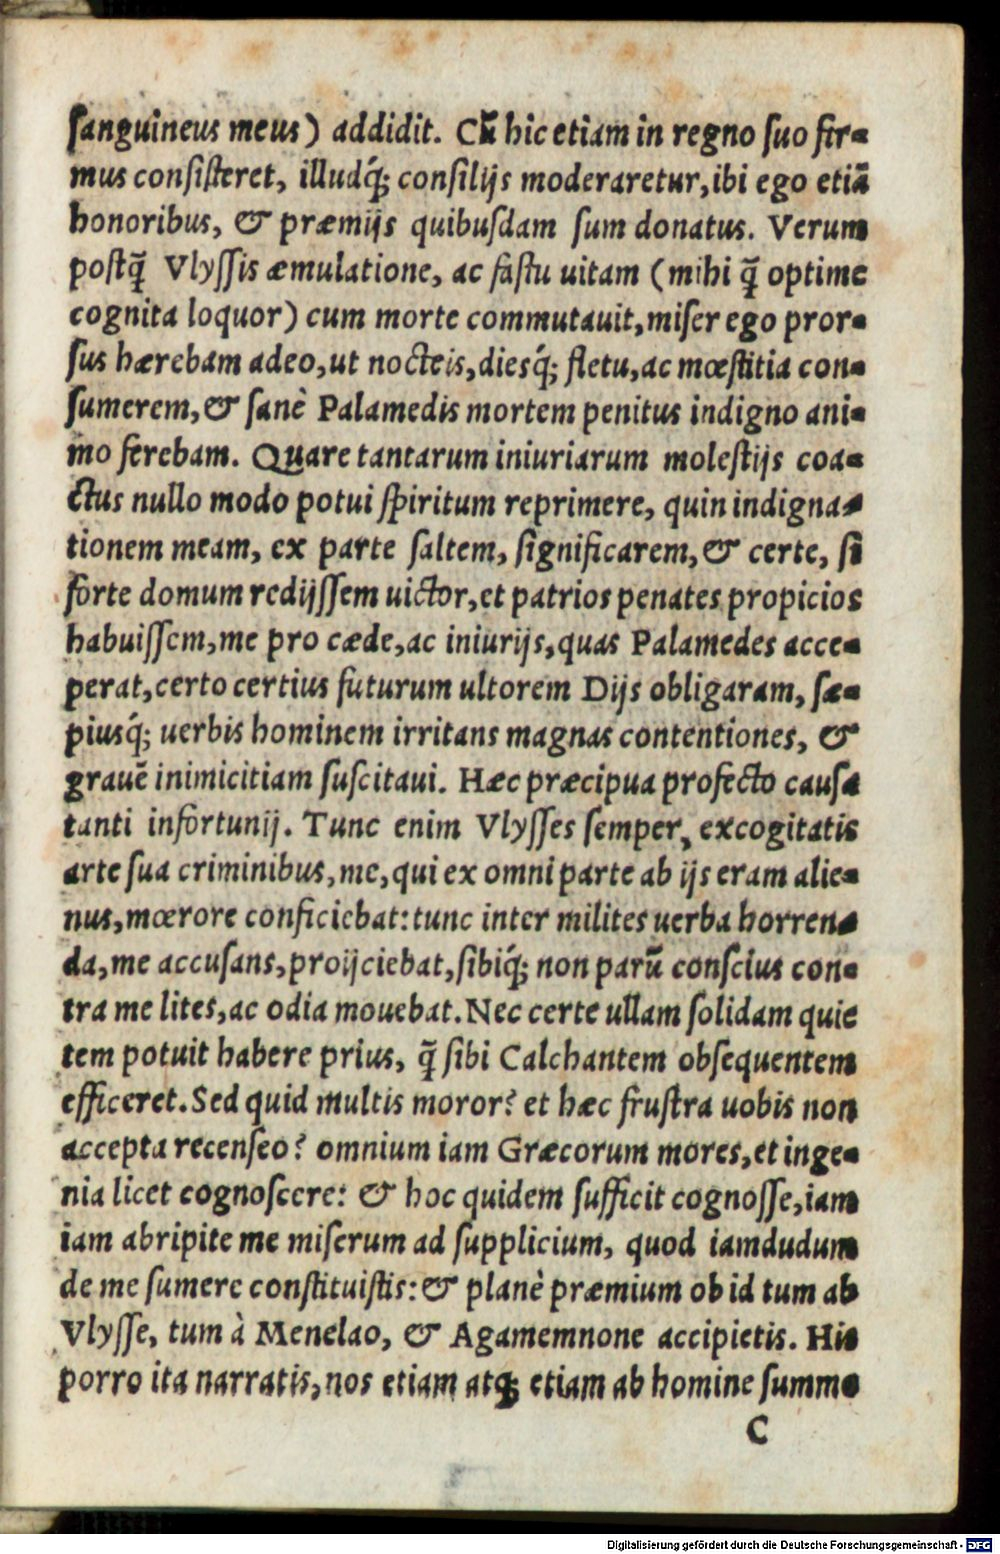 ſanguineus meus) addidit. Cũ hic etiam in regno ſuo fir-
mus conſiſteret, illudq́; conſilijs moderaretur, ibi ego etiã
honoribus, & præmijs quibuſdam ſum donatus. Verum
poſtq̃ Vlyſſis æmulatione, ac faſtu uitam (mihi q̃ optime
cognita loquor) cum morte commutauit, miſer ego pror-
ſus hærebam adeo, ut nocteis, diesq́; fletu, ac mœſtitia con-
ſumerem, & ſanè Palamedis mortem penitus indigno ani-
mo ferebam. Quare tantarum iniuriarum moleſtijs coa-
ctus nullo modo potui ſpiritum reprimere, quin indigna-
tionem meam, ex parte ſaltem, ſignificarem, & certe, ſi
forte domum redijſſem uictor, et patrios penates propicios
habuiſſem, me pro cæde, ac iniurijs, quas Palamedes acce-
perat, certo certius futurum ultorem Dijs obligaram, ſæ-
piusq́; uerbis hominem irritans magnas contentiones, &
grauẽ inimicitiam ſuſcitaui. Hæc præcipua profecto cauſa
tanti infortunij. Tunc enim Vlyſſes ſemper, excogitatis
arte ſua criminibus, me, qui ex omni parte ab ijs eram alie-
nus, mœrore conficiebat: tunc inter milites uerba horren-
da, me accuſans, proijciebat, ſibiq́; non parũ conſcius con-
tra me lites, ac odia mouebat. Nec certe ullam ſolidam quie
tem potuit habere prius, q̃ ſibi Calchantem obſequentem
efficeret. Sed quid multis moror? et hæc fruſtra uobis non
accepta recenſeo? omnium iam Græcorum mores, et inge-
nia licet cognoſcere: & hoc quidem ſufficit cognoſſe, iam
iam abripite me miſerum ad ſupplicium, quod iamdudum
de me ſumere conſtituiſtis: & planè præmium ob id tum ab
Vlyſſe, tum à Menelao, & Agamemnone accipietis. His
porro ita narratis, nos etiam atq; etiam ab homine ſummo
C
Digitalisierung gefördert durch die Deutsche Forschungsgemeinschaft - DFG